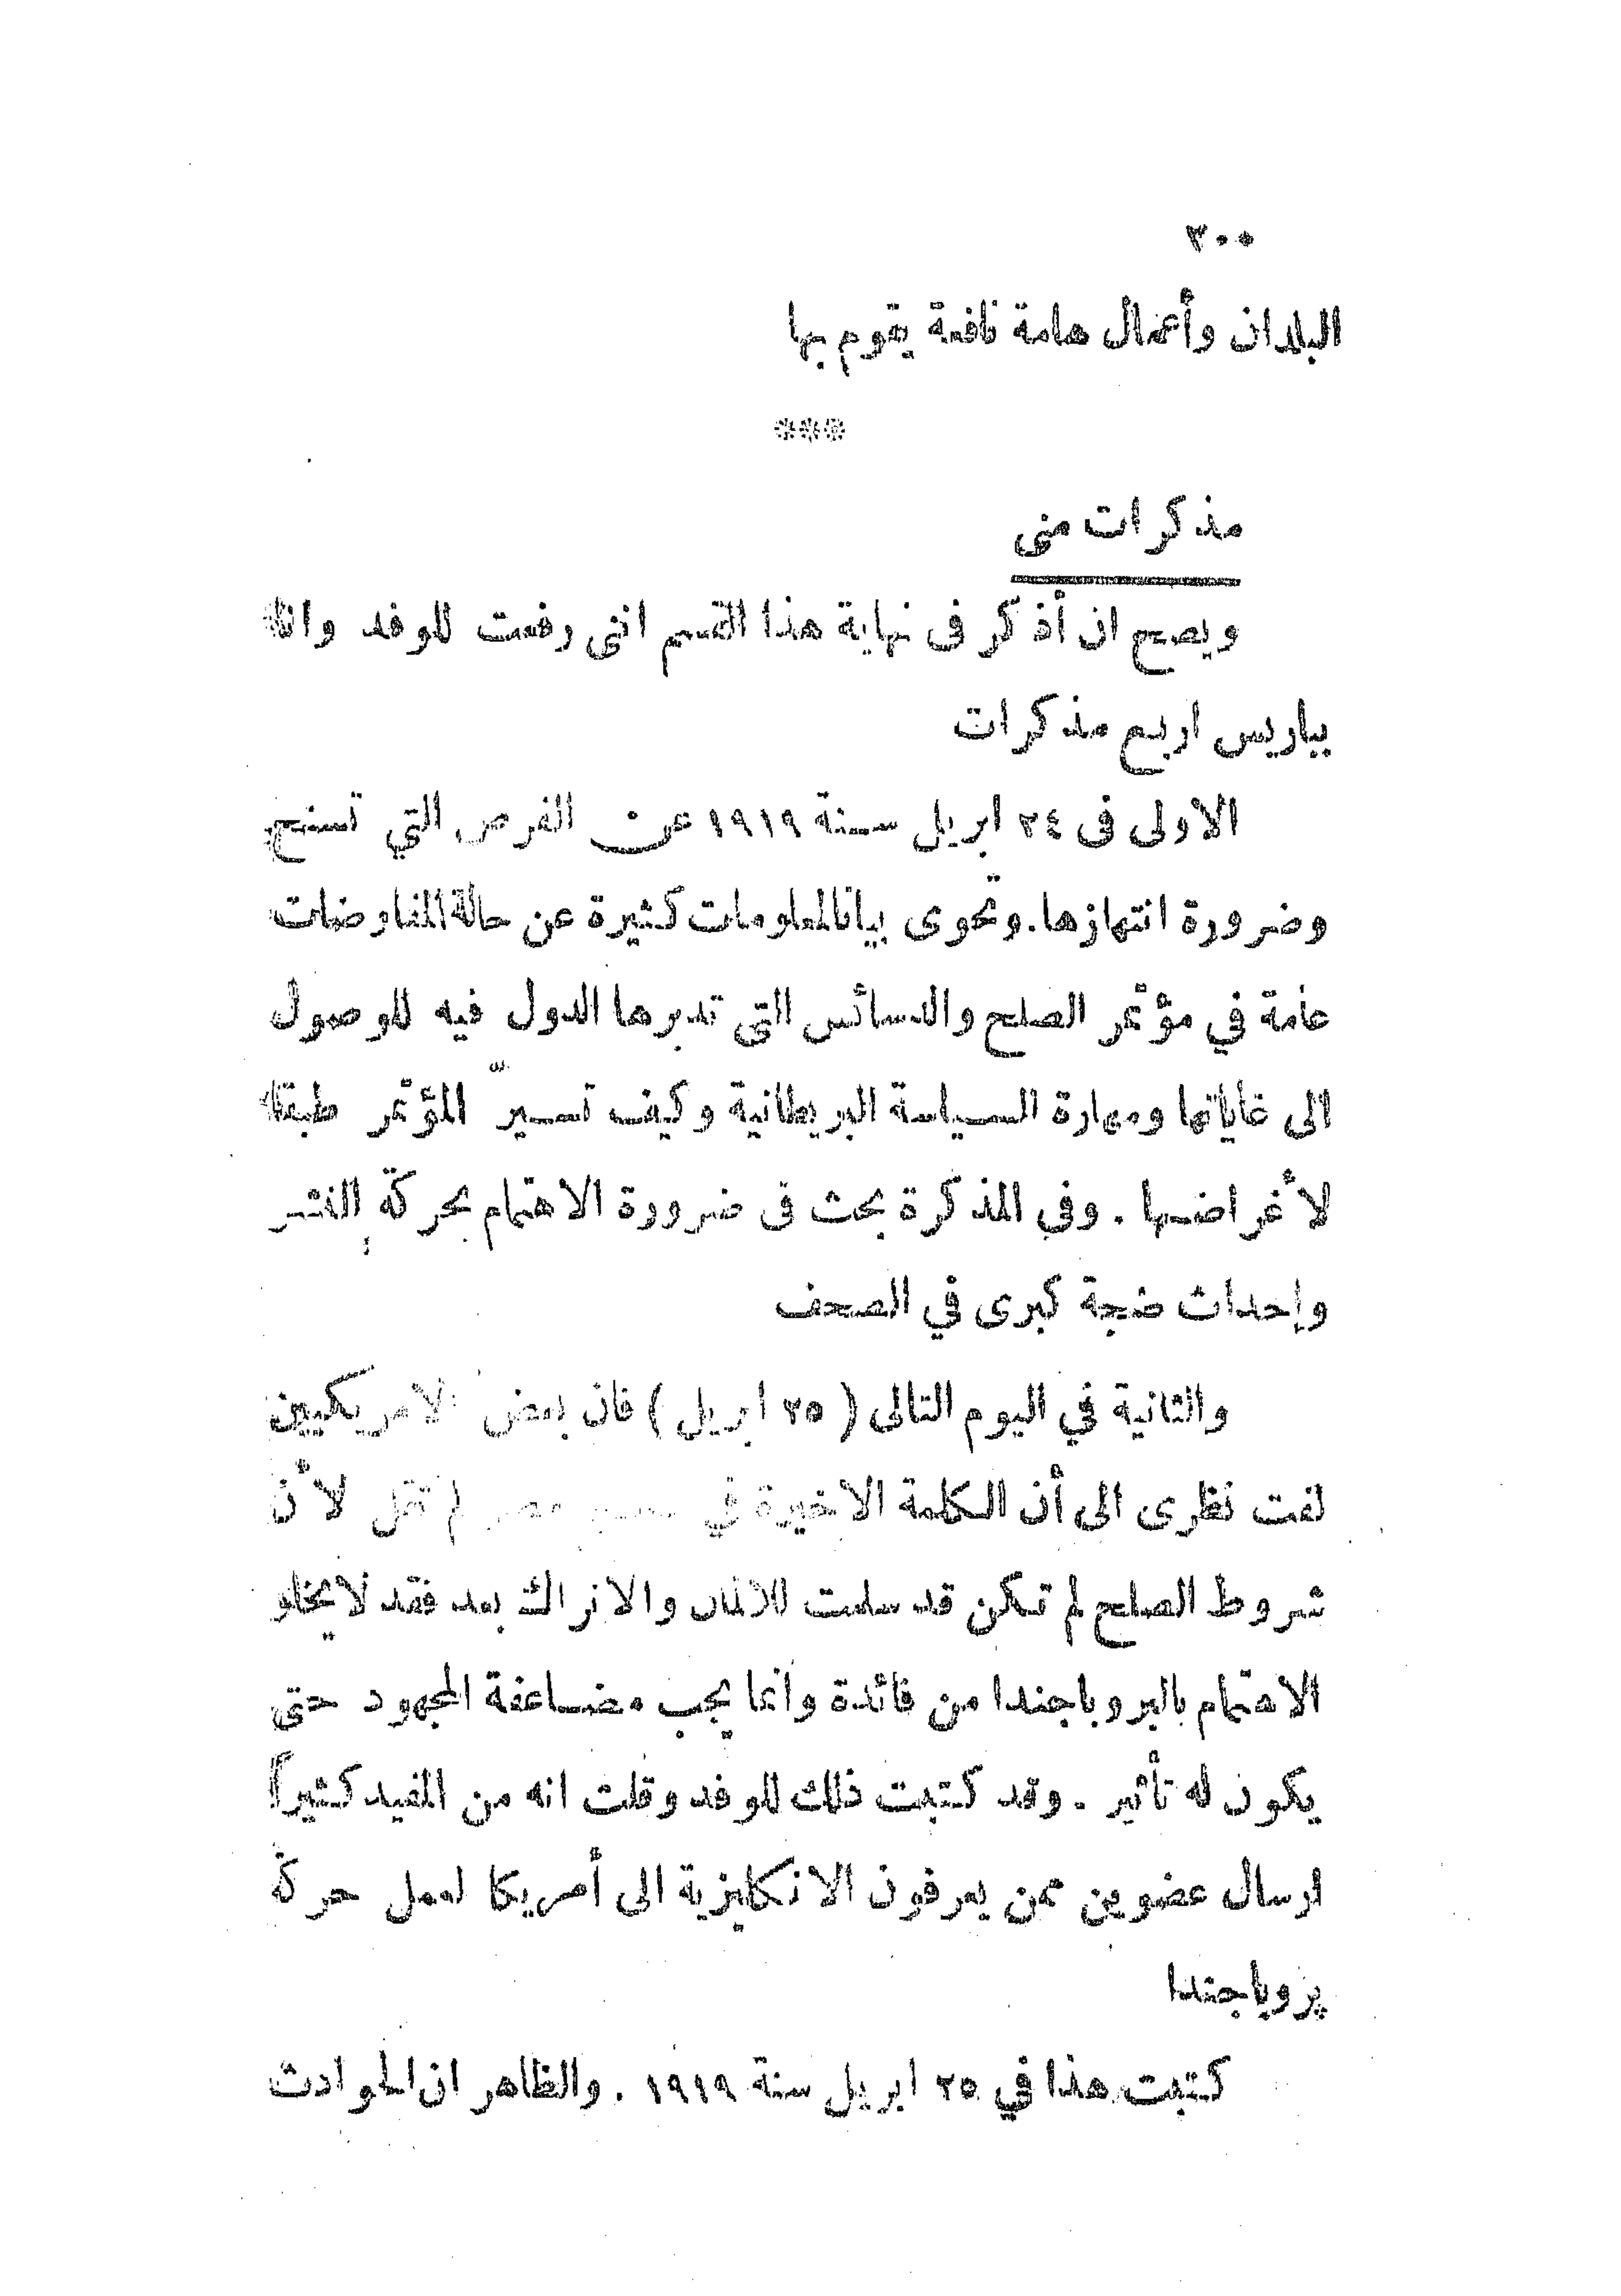 ٣٠٠
البلدان وأعمال هامة نافعة يقوم بها
***
مذكرات منى
ويصح ان أذكر فى نهاية هذا القسم اننى رفعت للوفد وانا
بباريس اربع مذكرات
الاولى فى ٢٤ ابريل سنة ١٩١٩ عن الفرص التي تسنح
وضرورة انتهازها. وتحوى بيانا لمعلومات كثيرة عن حالة المفاوضات
عامة في مؤتمر الصلح والدسائس التى تدبرها الدول فيه للوصول
الى غاياتها ومهارة السياسة البريطانية وكيف تسيّر المؤتمر طبقا
لأغراضها . وفي المذكرة بحث فى ضرورة الاهتمام بحركة النشر
وإحداث ضجة كبرى في الصحف
والثانية في اليوم التالى ( ٢٥ ابريل ) فان بعض الامريكيين
لفت نظرى الى أن الكلمة الاخيرة في مصر لم تقل لأن
شروط الصلح لم تكن قد سلمت للالمان والاتراك بعد فقد لا يخلو
الاهتمام بالبروباجندا من فائدة وانما يجب مضاعفة المجهود حتى
يكون له تأثير . وقد كتبت ذلك للوفد وقلت انه من المفيد كثيراً
ارسال عضوين ممن يعرفون الانكليزية الى أمريكا لعمل حركة
پروباجندا
كتبت هذا في ٢٥ ابريل سنة ١٩١٩ . والظاهر ان الحوادث